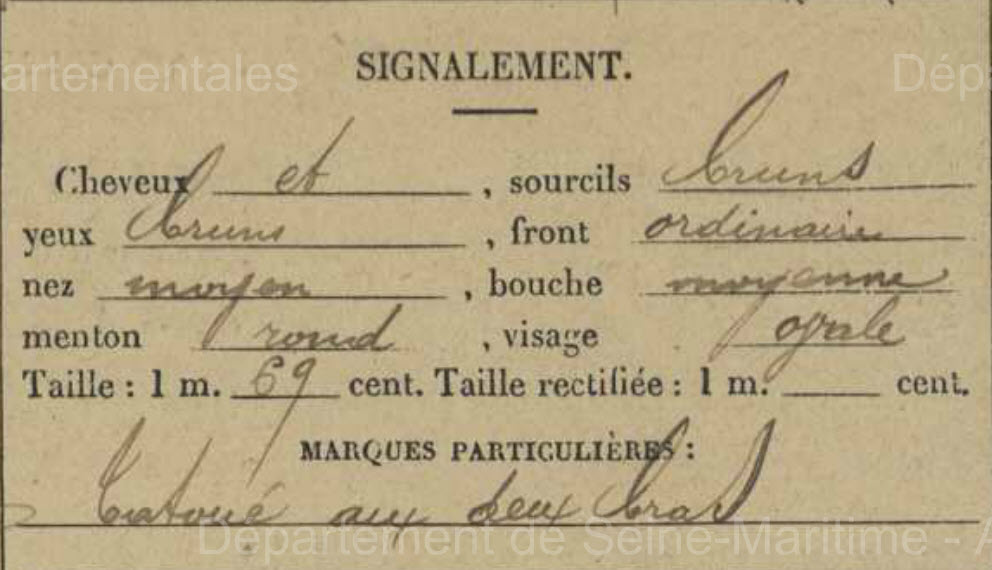 artementales Dépa
SIGNALEMENT.
Cheveux et, sourcils bruns
yeux bruns, front ordinaire
nez moyen, bouche moyenne
menton rond, visage ovale
Taille : 1 m. 69 cent. Taille rectifiée : 1 m. cent.
MARQUES PARTICULIÈRES :
tatoué aux deux bras
Département de Seine-Maritime - A